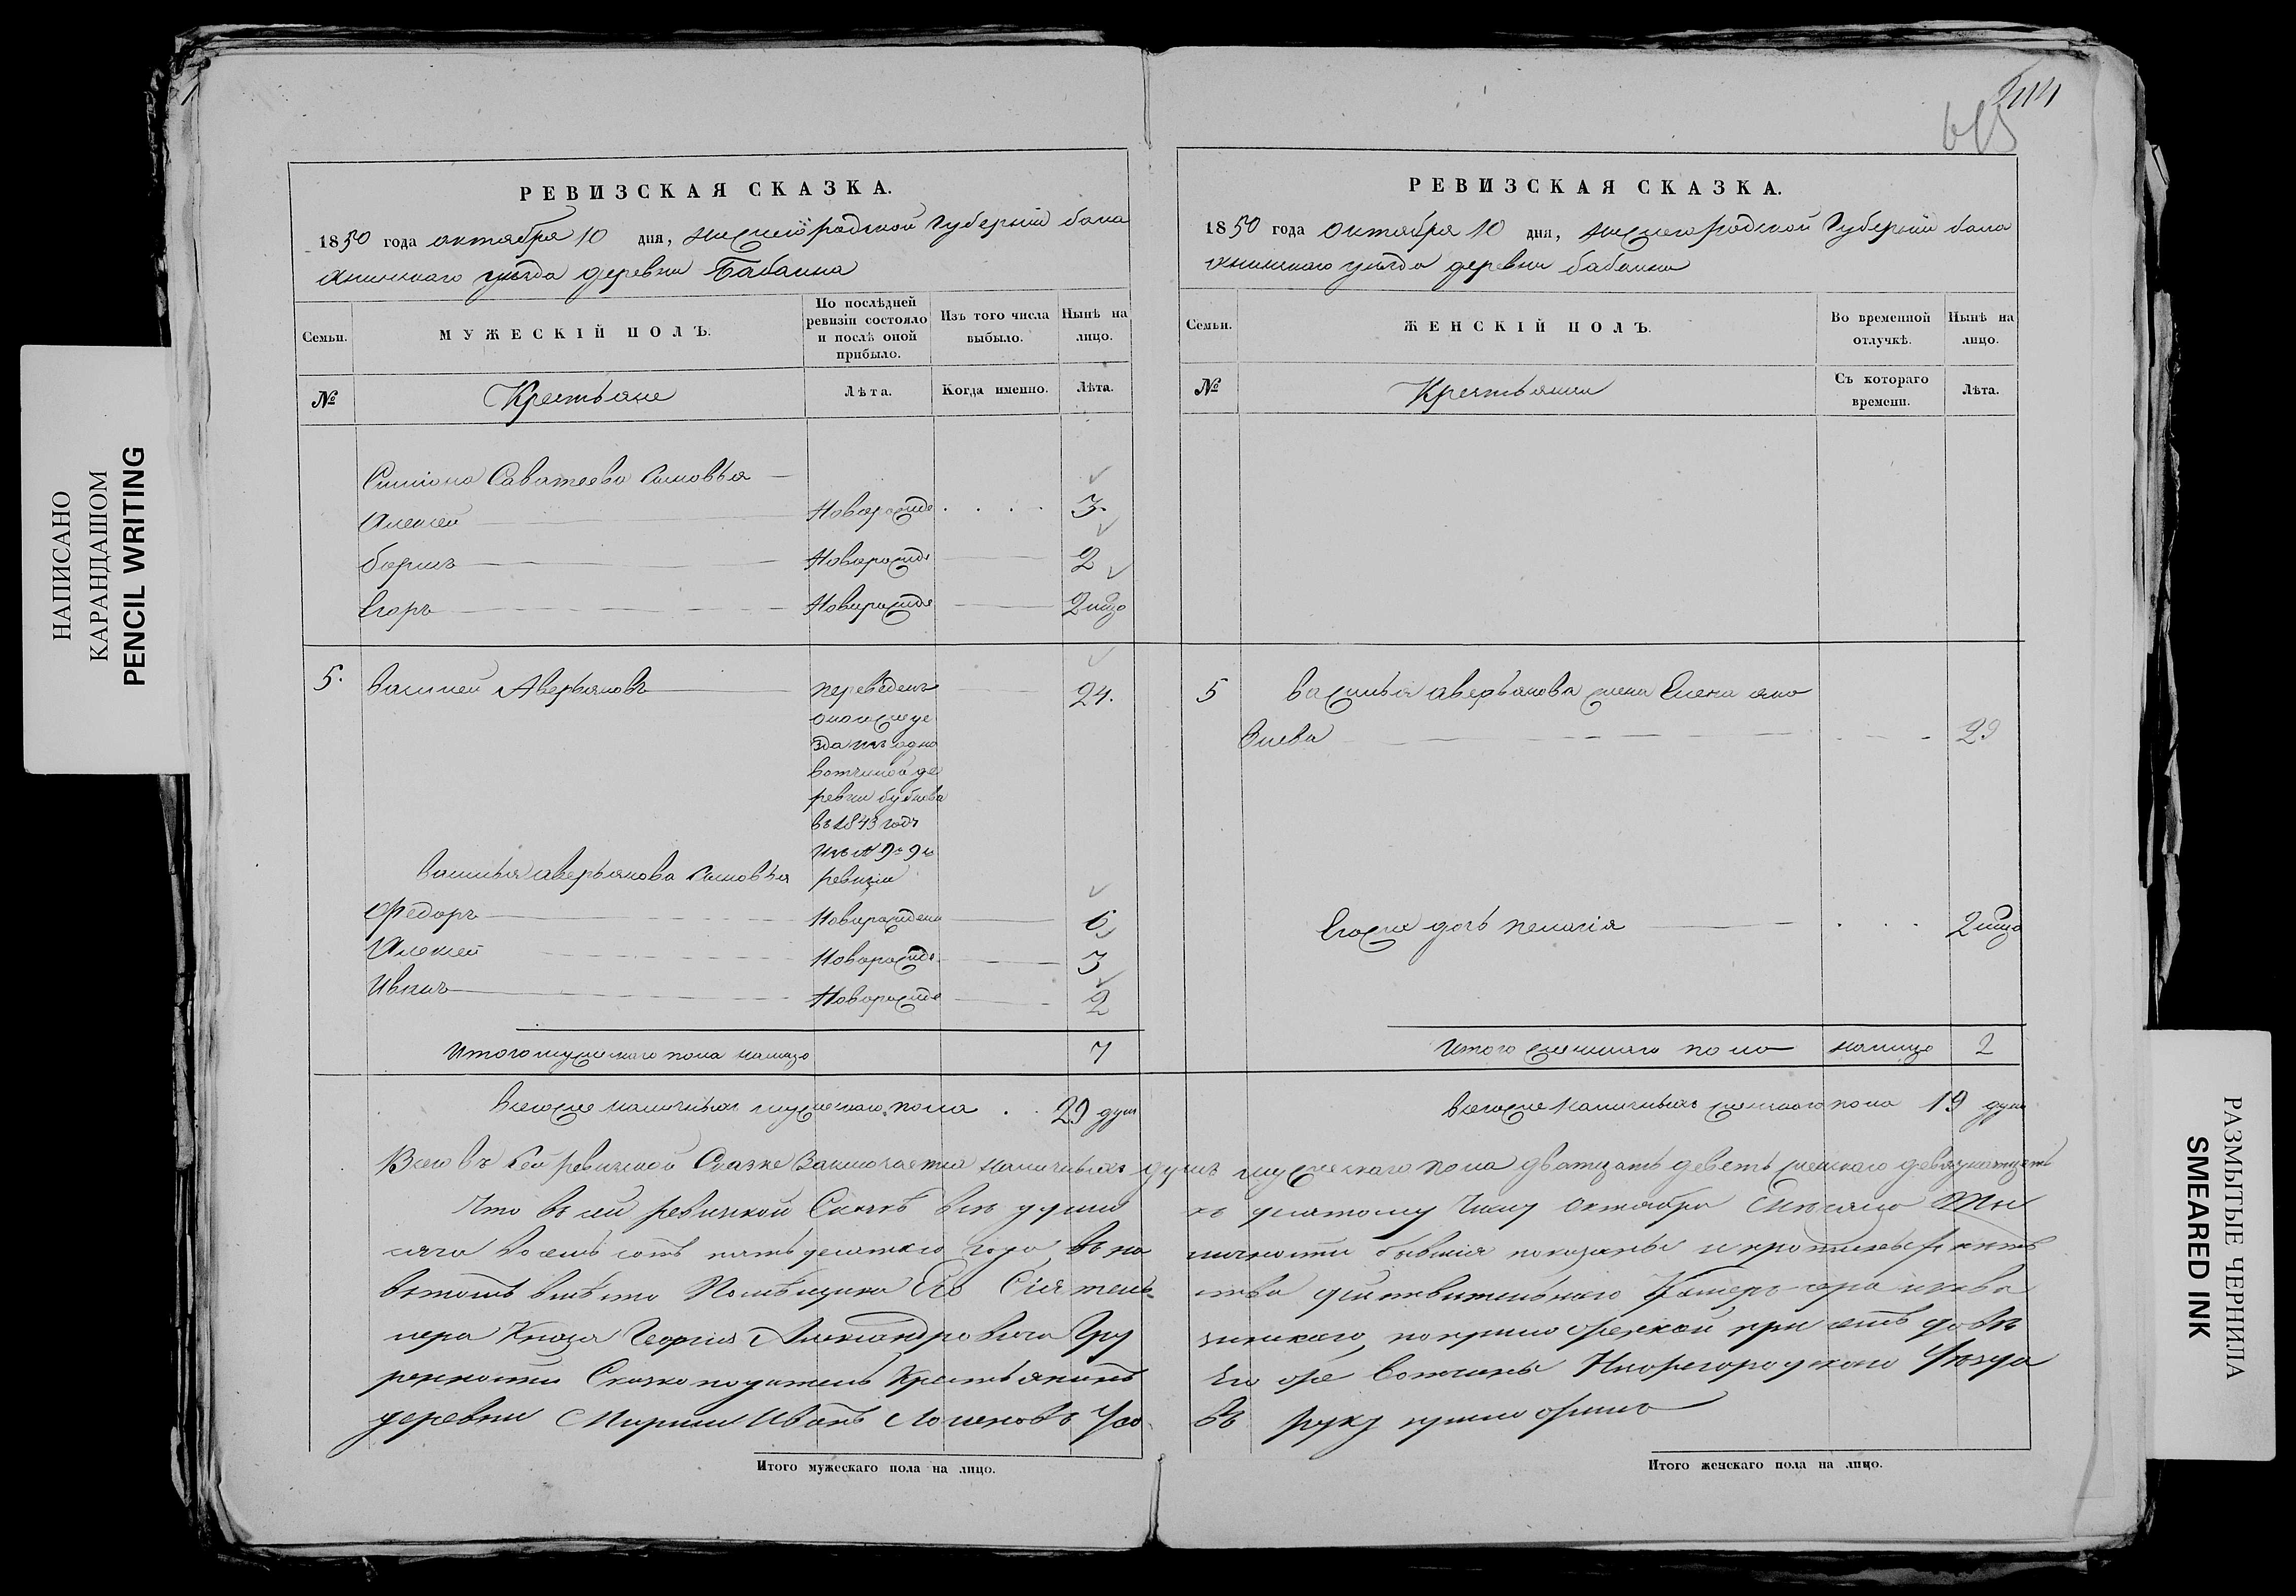 НАПИСАНО
КАРАНДАШОМ
PENCIL WRITING
РЕВИЗСКАЯ СКАЗКА.
1850 года октября 10 дня, нижегородской губерніи бала
хнинскаго уѣзда деревни Бабаина
Семьи.
МУЖЕСКІЙ ПОЛЪ.
По послѣдней ревизіи состояло и послѣ оной прибыло.
Изъ того числа выбыло.
Нынѣ на лицо.
№
Крестьяне
Лѣта.
Когда именно.
Лѣта.
Симіона Саватеева сыновья
Алексей Новорожде 3
борисъ Новорожде 2
Егоръ Новорожде
5. василей Аверьяновъ переведенъ 24.
оногоже уе
зда изъ одно
вотчиной де
ревни бубнова
въ 1843 году
ревизіи
Василья аверьянова сыновья
Федоръ Новорожденъ 6
Алексей Новорожде 3
Иванъ Новорожде 2
Итого мужескаго пола налицо 7
всегоже наличныхъ мужескаго пола 29 душ
РЕВИЗСКАЯ СКАЗКА.
1850 года октября 10 дня, нижегородской губерніи бала
хнинскаго уѣзда деревни бабаина
Семьи.
ЖЕНСКІЙ ПОЛЪ.
Во временной отлучкѣ.
Нынѣ на лицо.
№
Крестьянки
Съ котораго времени.
Лѣта.
5 василья аверьянова жена Елена яко
влева 29
Егоже дочь пелагія
Итого женскаго пола налицо 2
всегоже наличныхъ женскаго пола 19 душъ
Всего въ сей ревизкой Сказке Заключается наличныхъ душъ мужескаго пола дватцать деветь женскаго девятнатцать
Что въ сей ревизкой Сказкѣ всѣ души къ десятому числу Октября Мѣсяца Ты
сяча восемь сотъ пятьдесятаго года въ на личности бывшія показаны
вѣтомъ вмѣсто Помѣщика Его Сіятель ства дѣйствительнаго Камеръ-гера и кава
лера Князя Георгія Александровича Гру зинскаго, по
Сказкоподатель Крестьянинъ Его же вотчины Нижегородскаго Уѣзда
деревни Иванъ руку приложилъ
Итого мужескаго пола на лицо.
Итого женскаго пола на лицо.
РАЗМЫТЫЕ ЧЕРНИЛА
SMEARED INK